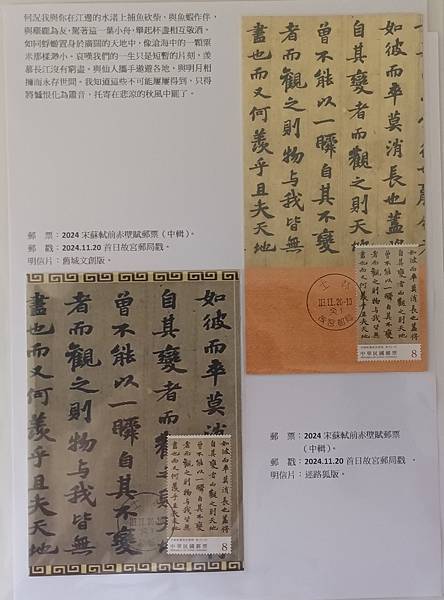 何況我與你在江邊的水渚上捕魚砍柴,與魚蝦作伴,
與麋鹿為友,駕著這一葉小舟,舉起杯盞相互敬酒,
如同蜉蝣置身於廣闊的天地中,像滄海中的一顆粟
米那樣渺小,哀嘆我們的一生只是短暫的片刻,羨
慕長江沒有窮盡。與仙人攜手遨遊各地,與明月相
擁而永存世間。我知道這些不可能屢屢得到,只得
將憾恨化為簫音,托寄在悲涼的秋風中罷了。
郵　票:2024 宋蘇軾前赤壁賦郵票(中輯)。
郵　戳:2024.11.20 首日故宮郵局戳。
明信片:舊城文創版。
如彼而卒莫消長也蓋
自其變者而觀之
曾不能以一瞬自其
者而觀之則物與我皆無
盡也而又何羨乎且夫天地
113.11.20-10
中華民國郵票
8
如彼而卒莫消
自其變者而
曾不能以一瞬自其不變
者而觀之則物與我皆無
盡也而又何羨乎且夫天地
中華民國郵票
8
郵　票:2024 宋蘇軾前赤壁賦郵票
(中輯)。
郵　戳:2024.11.20 首日故宮郵局戳。
明信片:迷路狐版。